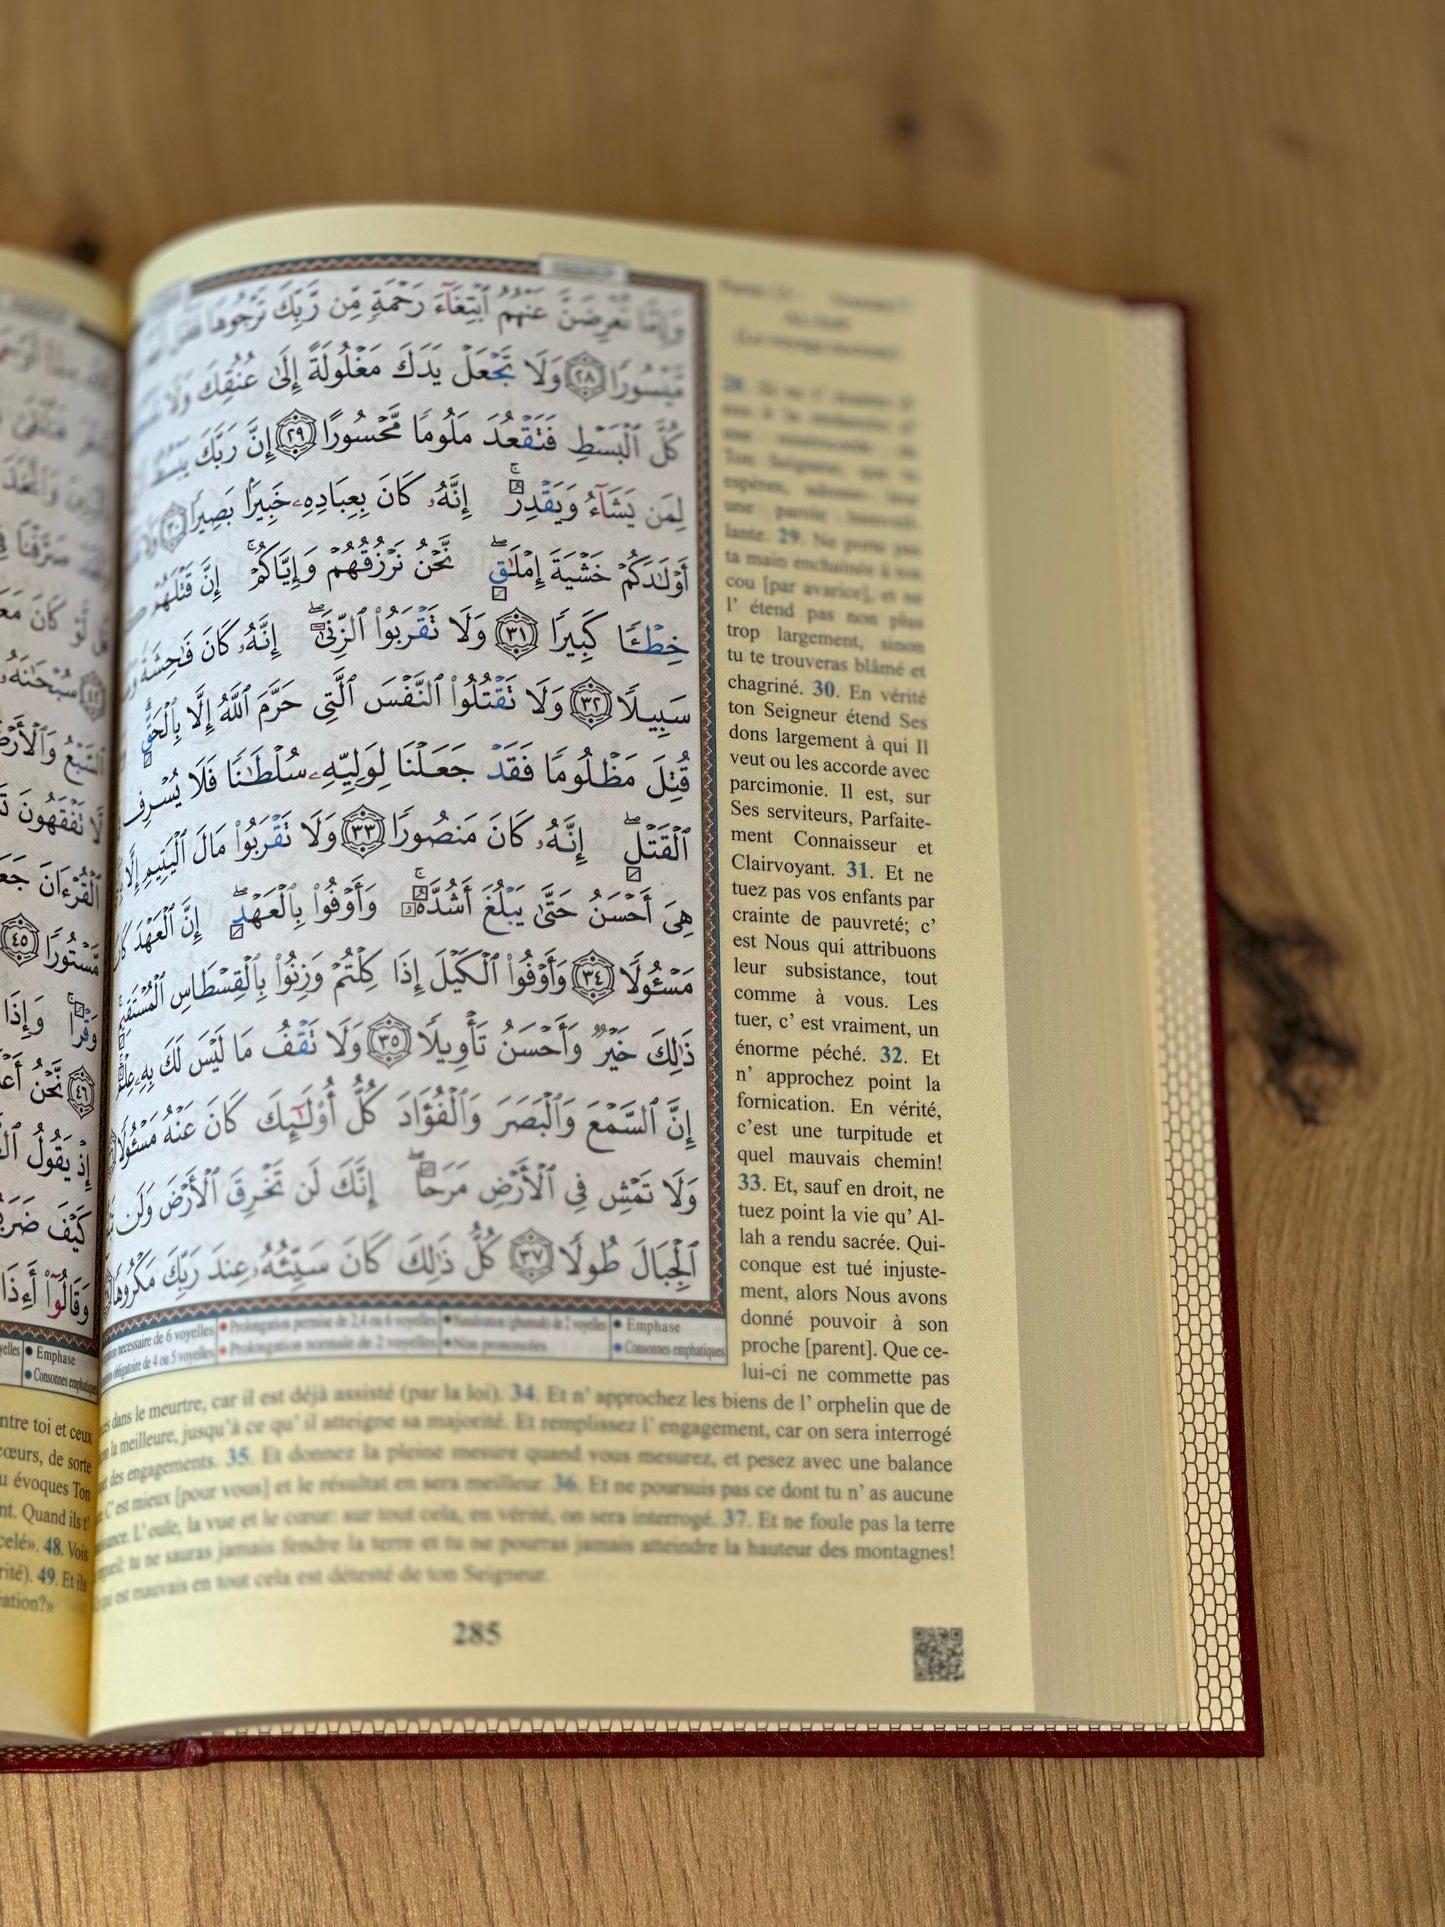 وَإِمَّا تُعْرِضَنَّ عَنْهُمُ ٱبْتِغَآءَ رَحْمَةٍ مِّن رَّبِّكَ تَرْجُوهَا فَقُل
مَّيْسُورًا ٢٨ وَلَا تَجْعَلْ يَدَكَ مَغْلُولَةً إِلَىٰ عُنُقِكَ وَلَا
كُلَّ ٱلْبَسْطِ فَتَقْعُدَ مَلُومًا مَّحْسُورًا ٢٩ إِنَّ رَبَّكَ يَبْسُطُ
لِمَن يَشَآءُ وَيَقْدِرُ ۚ إِنَّهُۥ كَانَ بِعِبَادِهِۦ خَبِيرًۢا بَصِيرًا ٣٠ وَلَا
أَوْلَـٰدَكُمْ خَشْيَةَ إِمْلَـٰقٍ ۖ نَّحْنُ نَرْزُقُهُمْ وَإِيَّاكُمْ ۚ إِنَّ قَتْلَهُمْ
خِطْـًٔا كَبِيرًا ٣١ وَلَا تَقْرَبُوا۟ ٱلزِّنَىٰٓ ۖ إِنَّهُۥ كَانَ فَـٰحِشَةً
سَبِيلًا ٣٢ وَلَا تَقْتُلُوا۟ ٱلنَّفْسَ ٱلَّتِى حَرَّمَ ٱللَّهُ إِلَّا بِٱلْحَقِّ ۗ
قُتِلَ مَظْلُومًا فَقَدْ جَعَلْنَا لِوَلِيِّهِۦ سُلْطَـٰنًا فَلَا يُسْرِف
ٱلْقَتْلِ ۖ إِنَّهُۥ كَانَ مَنصُورًا ٣٣ وَلَا تَقْرَبُوا۟ مَالَ ٱلْيَتِيمِ إِلَّا
هِىَ أَحْسَنُ حَتَّىٰ يَبْلُغَ أَشُدَّهُۥ ۚ وَأَوْفُوا۟ بِٱلْعَهْدِ ۖ إِنَّ ٱلْعَهْدَ كَانَ
مَسْـُٔولًا ٣٤ وَأَوْفُوا۟ ٱلْكَيْلَ إِذَا كِلْتُمْ وَزِنُوا۟ بِٱلْقِسْطَاسِ ٱلْمُسْتَقِيمِ ۚ
ذَٰلِكَ خَيْرٌ وَأَحْسَنُ تَأْوِيلًا ٣٥ وَلَا تَقْفُ مَا لَيْسَ لَكَ بِهِۦ عِلْمٌ ۚ
إِنَّ ٱلسَّمْعَ وَٱلْبَصَرَ وَٱلْفُؤَادَ كُلُّ أُو۟لَـٰٓئِكَ كَانَ عَنْهُ مَسْـُٔولًا
وَلَا تَمْشِ فِى ٱلْأَرْضِ مَرَحًا ۖ إِنَّكَ لَن تَخْرِقَ ٱلْأَرْضَ وَلَن
ٱلْجِبَالَ طُولًا ٣٧ كُلُّ ذَٰلِكَ كَانَ سَيِّئُهُۥ عِندَ رَبِّكَ مَكْرُوهًا
nécessaire de 6 voyelles • Prolongation permise de 2,4 ou 6 voyelles • Nasalisation (ghunnah) de 2 voyelles • Emphase
obligatoire de 4 ou 5 voyelles • Prolongation normale de 2 voyelles • Non prononcées • Consonnes emphatiques
28.
Ton Seigneur, que tu
une parole bienveil-
lante. 29. Ne porte pas
ta main enchaînée à ton
cou [par avarice], et ne
l' étend pas non plus
trop largement, sinon
tu te trouveras blâmé et
chagriné. 30. En vérité
ton Seigneur étend Ses
dons largement à qui Il
veut ou les accorde avec
parcimonie. Il est, sur
Ses serviteurs, Parfaite-
ment Connaisseur et
Clairvoyant. 31. Et ne
tuez pas vos enfants par
crainte de pauvreté; c'
est Nous qui attribuons
leur subsistance, tout
comme à vous. Les
tuer, c' est vraiment, un
énorme péché. 32. Et
n' approchez point la
fornication. En vérité,
c'est une turpitude et
quel mauvais chemin!
33. Et, sauf en droit, ne
tuez point la vie qu' Al-
lah a rendu sacrée. Qui-
conque est tué injuste-
ment, alors Nous avons
donné pouvoir à son
proche [parent]. Que ce-
lui-ci ne commette pas
dans le meurtre, car il est déjà assisté (par la loi). 34. Et n' approchez les biens de l' orphelin que de
la meilleure, jusqu'à ce qu' il atteigne sa majorité. Et remplissez l' engagement, car on sera interrogé
des engagements. 35. Et donnez la pleine mesure quand vous mesurez, et pesez avec une balance
C' est mieux [pour vous] et le résultat en sera meilleur. 36. Et ne poursuis pas ce dont tu n' as aucune
L' ouïe, la vue et le cœur: sur tout cela, en vérité, on sera interrogé. 37. Et ne foule pas la terre
tu ne sauras jamais fendre la terre et tu ne pourras jamais atteindre la hauteur des montagnes!
qui est mauvais en tout cela est détesté de ton Seigneur.
285
سُبْحَـٰنَهُۥ
لَّا تَفْقَهُونَ
ٱلْقُرْءَانَ
مَّسْتُورًا ٤٥
وَقْرًا ۚ وَإِذَا
٤٦ نَّحْنُ
إِذْ يَقُولُ
كَيْفَ
وَقَالُوٓا۟ أَءِذَا
• Emphase
• Consonnes emphatiques
entre toi et ceux
cœurs, de sorte
évoques Ton
Quand ils t'
48. Vois
49. Et ils